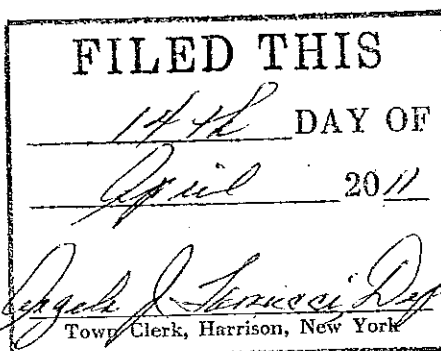 FILED THIS
14th DAY OF
April 2011
Angela J. Dep
Town Clerk, Harrison, New York